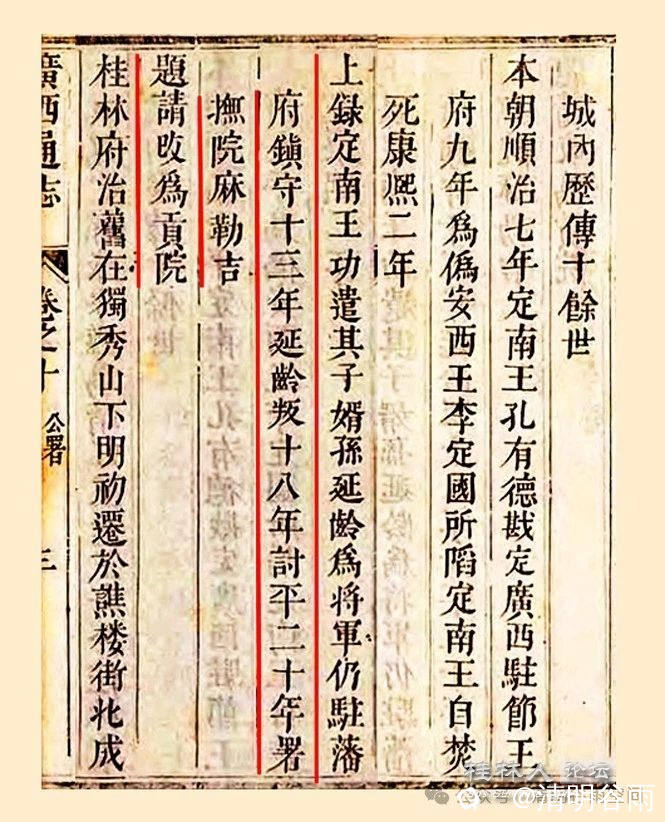 城內歷傳十餘世
本朝順治七年定南王孔有德戡定廣西駐節王
府九年為僞安西王李定國所陷定南王自焚
死康熙二年
上録定南王功遣其子婿孫延齡為将軍仍駐藩
府鎮守十三年延齡叛十八年討平二十年署
撫院麻勒吉
題請改為貢院
桂林府治舊在獨秀山下明初遷於譙楼街北成
廣西通志
卷之十
公署
三
桂林人论坛
公众号
雨空间
@清明谷雨